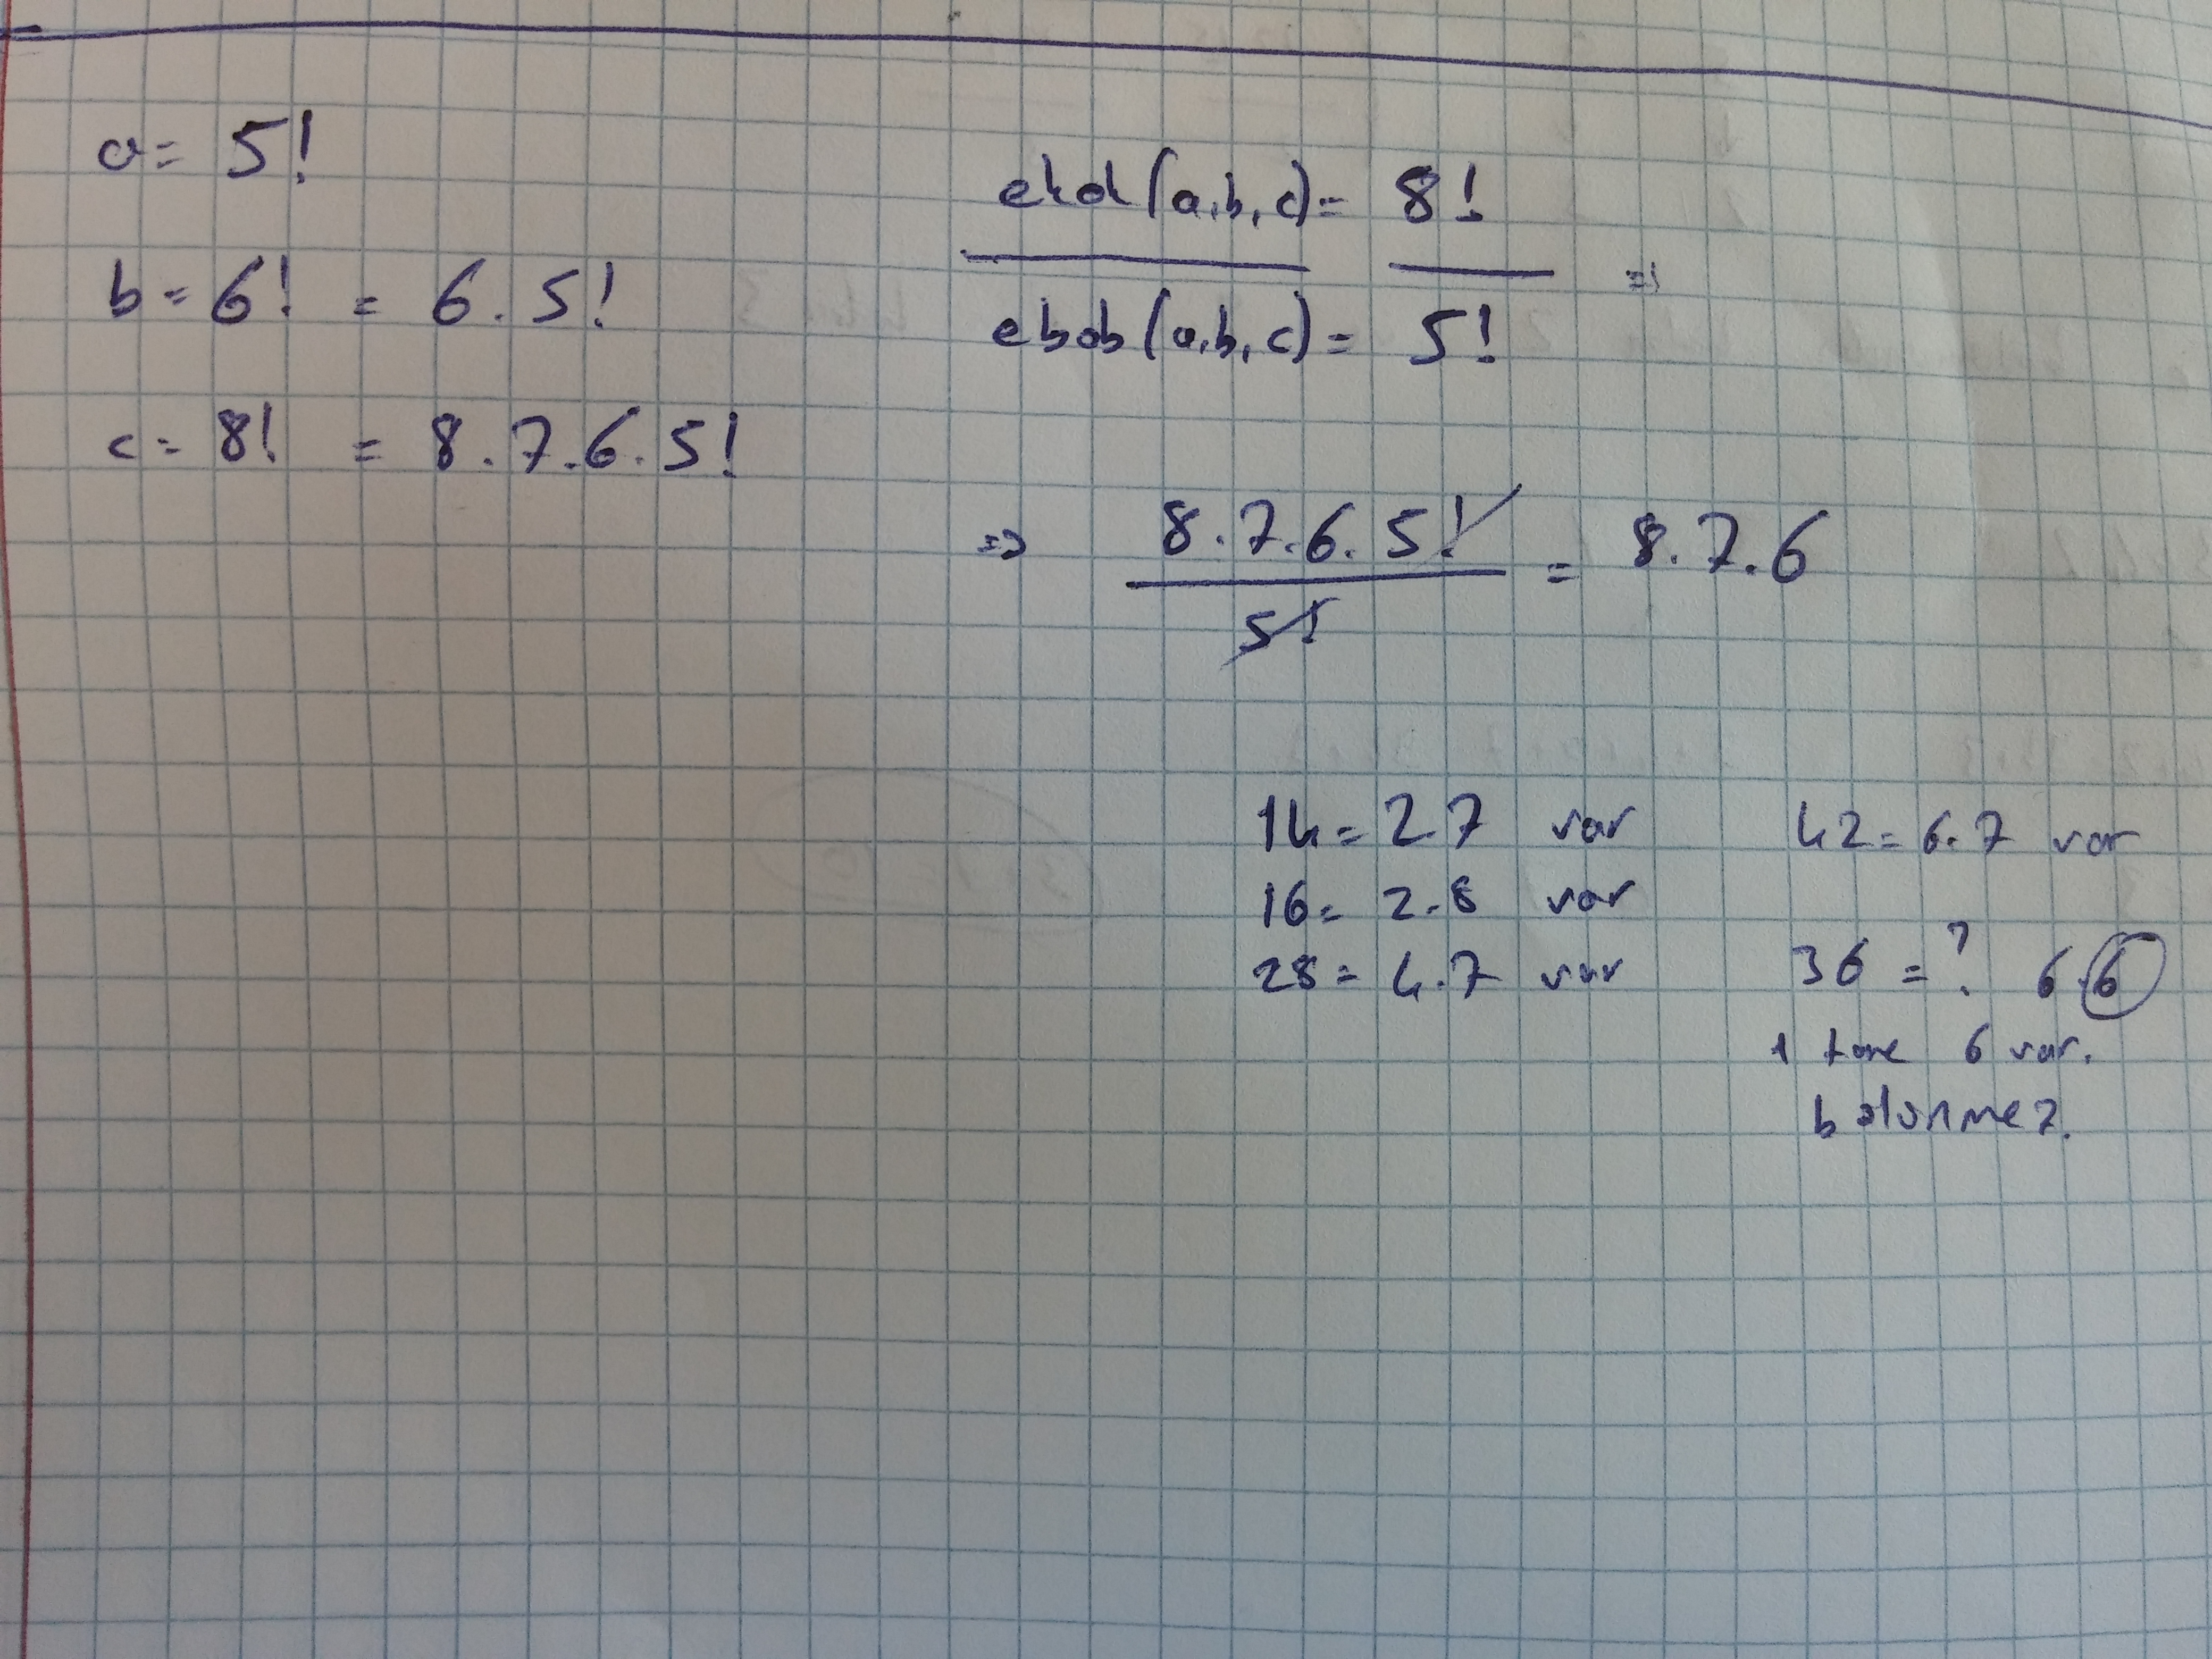 a = 5!
b = 6! = 6.5!
c = 8! = 8.7.6.5!
ekok(a,b,c) = 8!
ebob(a,b,c) = 5!
=>
=> 8.7.6.5! = 8.7.6
5!
14 = 2.7 var
16 = 2.8 var
28 = 4.7 var
42 = 6.7 var
36 = ? 6.6
1 tane 6 var.
bölünmez.